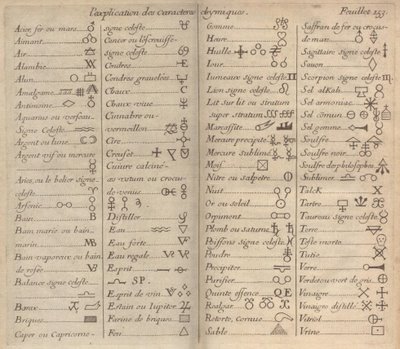 L'explication des Caracteres
chymiques.
Feuillet 253
Acier fer ou mars
Aimant
Air
Alambic
Alun
Amalgame
Antimoine
Aquarius ou verseau
Signe Celeste
Argent ou lune
Argent vif ou mercure
Aries ou le belier signe
celeste
Arsenic
Bain
Bain marie ou bain
marin
MB
Bain vaporeux ou bain
de rosee
VB
Balance signe celeste
Borax
Brique
Caper ou Capricorne
signe celeste
Cancer ou l'Ecrevisse
signe celeste
Cendres
Cendres gravelées
Chaux
Chaux vive
Cinnabre ou
vermeillon
Cire
Creuset
Cuivre calciné
aes ustum ou crocus
de venus
Distiller
Eau
Eau forte
Eau regale
Esprit
SP.
Esprit de vin
Estain ou Jupiter
Farine de briques
Feu
Gomme
Heure
Huille
Iour
Iumeaux signe celeste
Lion signe celeste
Lit sur lit ou stratum
super stratum SSS
Marcassite
Mercure precipité
Mercure sublimé
Mois
Nitre ou salpetre
Nuit
Or ou soleil
Orpiment
Plomb ou Saturne
Poissons signe celeste
Poudre
Precipiter
Purifier
Quinte essence QE
Realgar
Retorte, Cornue
Sable
Saffran de fer ou crocus
de mars
Sagittaire signe celeste
Savon
Scorpion signe celeste
Sel alkali
Sel armoniac
Sel cõmun
Sel gemme
Soulfre
Soulfre noir
Soulfre des philosophes
Sublimer
Talck X
Tartre
Taureau signe celeste
Terre
Teste morte
Tutie
Verre
Verdet ou vert de gris
Vinaigre
Vinaigre distillé
Vitriol
Urine